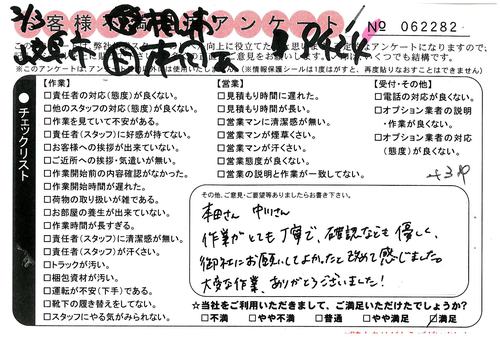 お客様 不満 アンケート
No 062282
チェックリスト
【作業】
□責任者の対応(態度)が良くない。
□他のスタッフの対応(態度)が良くない。
□作業を見ていて不安がある。
□責任者(スタッフ)に好感が持てない。
□お客様への挨拶が出来ていない。
□ご近所への挨拶・気遣いが無い。
□作業開始前の内容確認がなかった。
□作業開始時間が遅れた。
□荷物の取り扱いが雑である。
□お部屋の養生が出来ていない。
□作業時間が長すぎる。
□責任者(スタッフ)に清潔感が無い。
□責任者(スタッフ)が汗くさい。
□トラックが汚い。
□梱包資材が汚い。
□運転が不安(下手)である。
□靴下の履き替えをしてない。
□スタッフにやる気がみられない。
【営業】
□見積もり時間に遅れた。
□見積もり時間が長い。
□営業マンに清潔感が無い。
□営業マンが煙草くさい。
□営業マンが汗くさい。
□営業態度が良くない。
□営業の説明と作業が一致してない。
【受付・その他】
□電話の対応が良くない。
□オプション業者の説明
・作業が良くない。
□オプション業者の対応
(態度)が良くない。
その他、ご意見・ご要望等ありましたらお書き下さい。
本田さん 中川さん
作業がとても丁寧で、確認なども優しく、
御社にお願いしてよかったと改めて感じました。
大変な作業、ありがとうございました!
☆当社をご利用いただきまして、ご満足いただけたでしょうか?
□不満 □やや不満 □普通 □やや満足 ☑満足